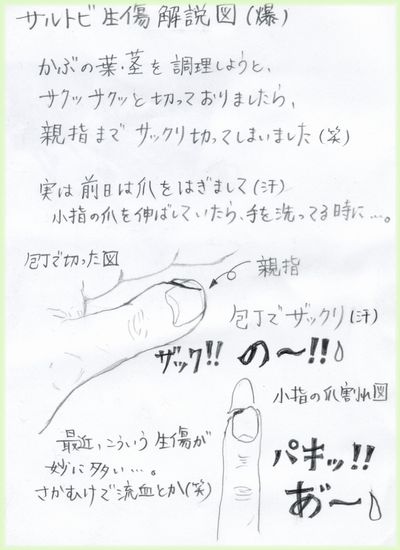 サルトビ生傷解説図(爆)
かぶの葉・茎を調理しようと、
サクッサクッと切っておりましたら、
親指までザックリ切ってしまいました(笑)
実は前日は爪をはぎまして(汗)
小指の爪を伸ばしていたら、手を洗ってる時に…。
包丁で切った図
親指
包丁でザックリ(汗)
ザック!! の〜!!
小指の爪割れ図
最近、こういう生傷が
妙に多い…。
さかむけで流血とか(笑)
パキッ!!
あ゛〜